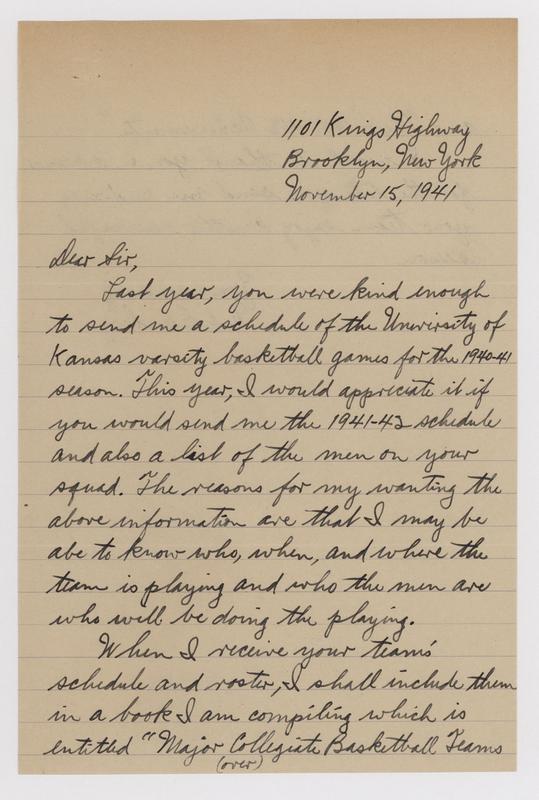 1101 Kings Highway
Brooklyn, New York
November 15, 1941
Dear Sir,
Last year, you were kind enough
to send me a schedule of the Unwirsity of
Kansas varsity basketball games for the 1940-41
season. This year, I would appreciate it if
you would send me the 1941-42 schedule
and also a list of the men on your
squad. The reasons for my wanting the
above information are that I may be
abe to know who, when, and where the
team is playing and who the men are
who will be doing the playing.
When I receive your team's
schedule and roster, I shall include them
in a book I am compiling which is
entitled "Major Collegiate Basketball Teams
(over)